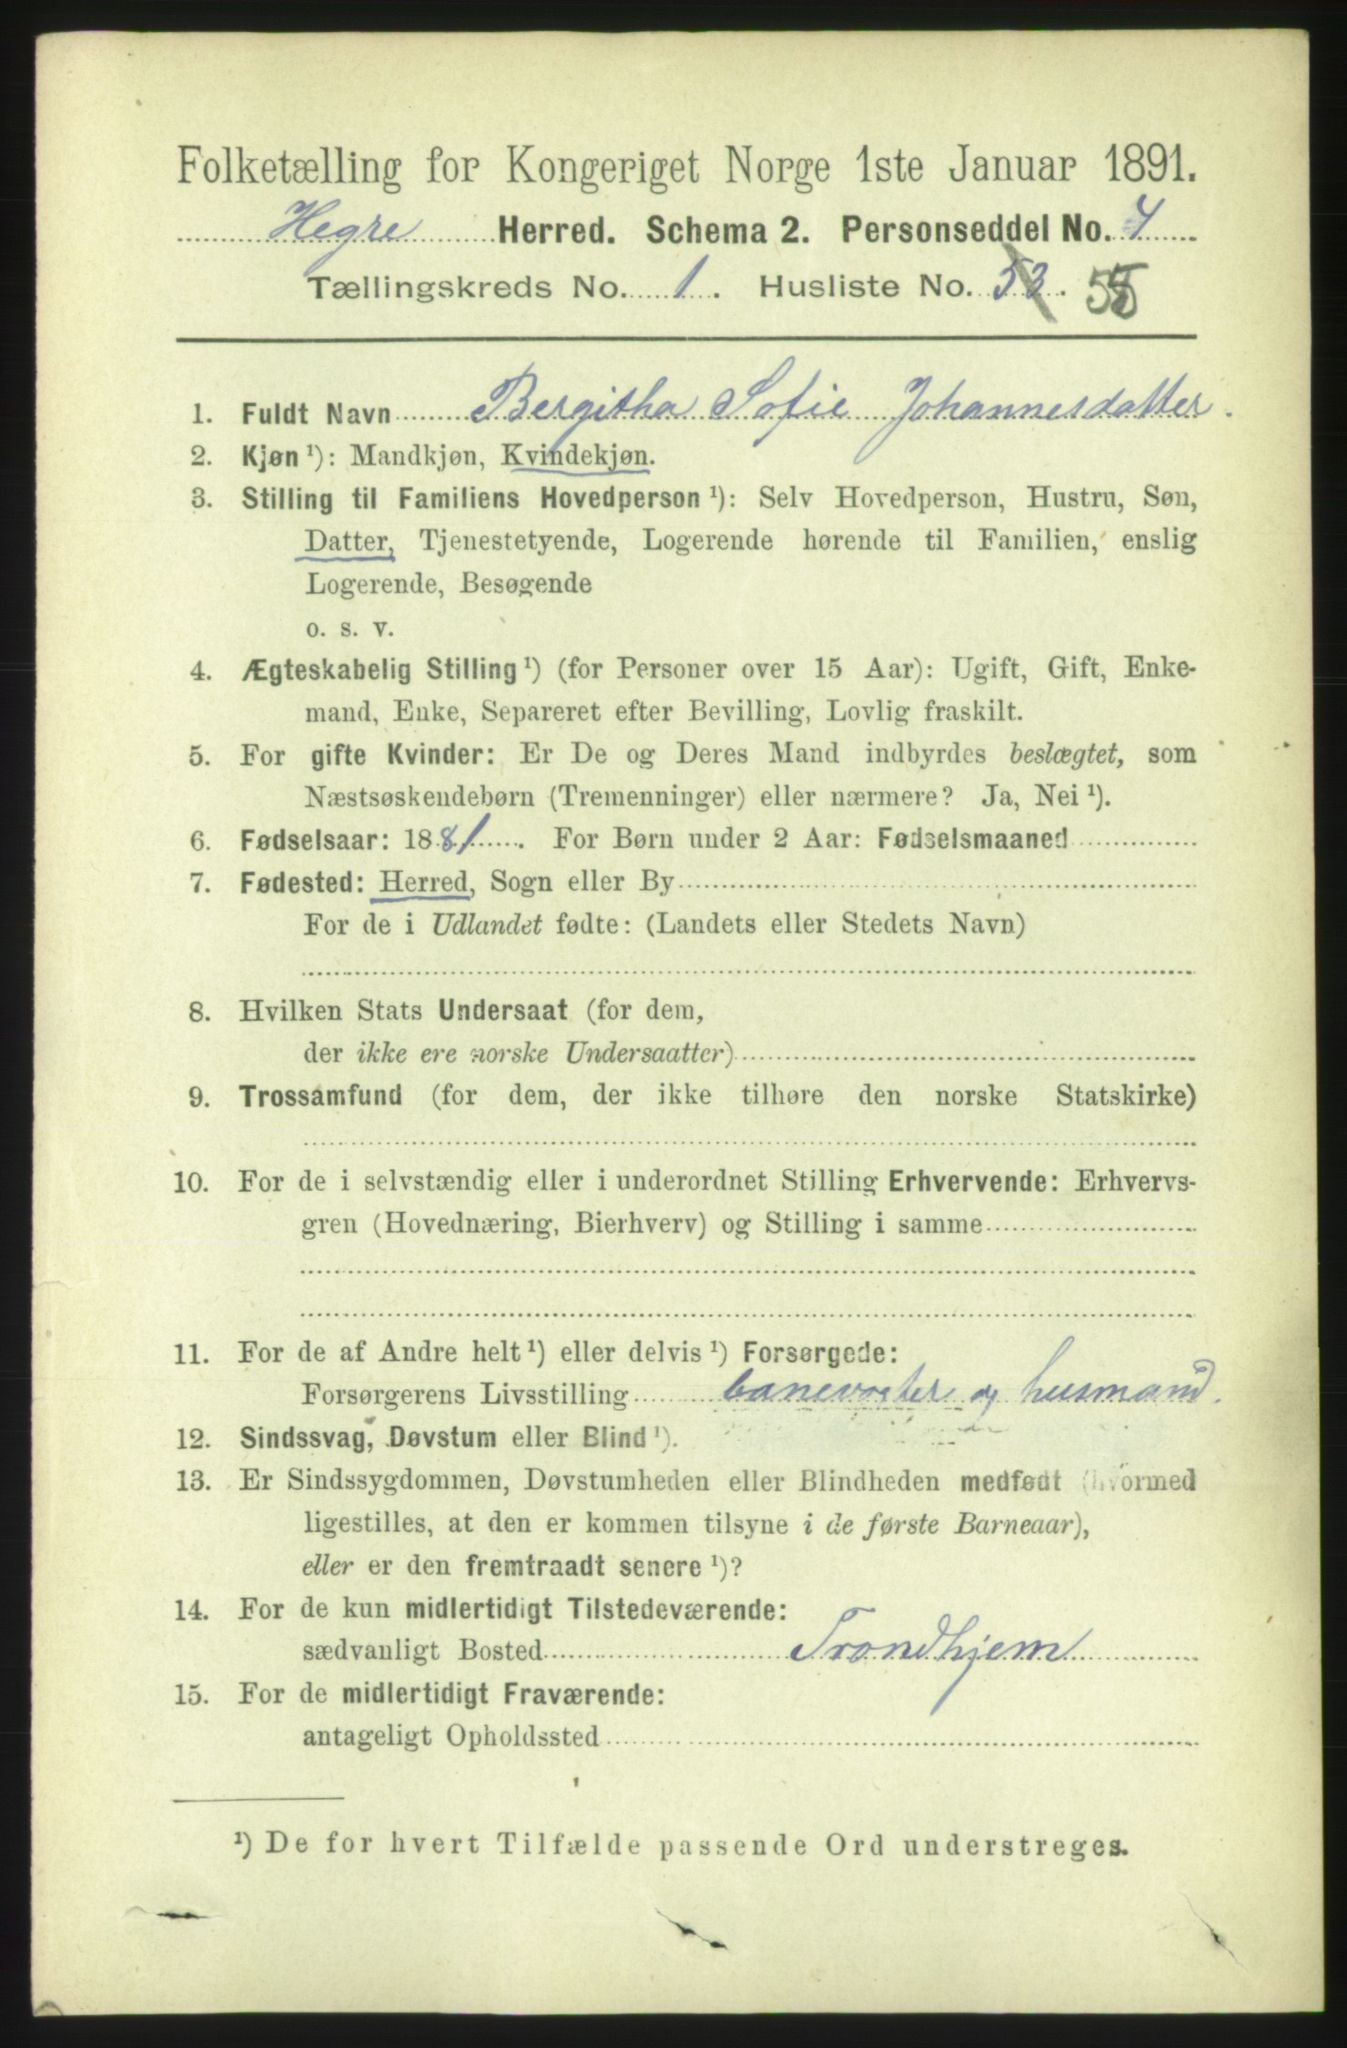 Folketælling for Kongeriget Norge 1ste Januar 1891.
Hegre Herred. Schema 2. Personseddel No. 4
Tællingskreds No. 1. Husliste No. 53. 55
1. Fuldt Navn Bergitha Sofie Johannesdatter.
2. Kjøn ¹): Mandkjøn, Kvindekjøn.
3. Stilling til Familiens Hovedperson ¹): Selv Hovedperson, Hustru, Søn,
Datter, Tjenestetyende, Logerende hørende til Familien, enslig
Logerende, Besøgende
o. s. v.
4. Ægteskabelig Stilling ¹) (for Personer over 15 Aar): Ugift, Gift, Enke-
mand, Enke, Separeret efter Bevilling, Lovlig fraskilt.
5. For gifte Kvinder: Er De og Deres Mand indbyrdes beslægtet, som
Næstsøskendebørn (Tremenninger) eller nærmere? Ja, Nei ¹).
6. Fødselsaar: 1881. For Børn under 2 Aar: Fødselsmaaned
7. Fødested: Herred, Sogn eller By
For de i Udlandet fødte: (Landets eller Stedets Navn)
8. Hvilken Stats Undersaat (for dem,
der ikke ere norske Undersaatter)
9. Trossamfund (for dem, der ikke tilhøre den norske Statskirke)
10. For de i selvstændig eller i underordnet Stilling Erhvervende: Erhvervs-
gren (Hovednæring, Bierhverv) og Stilling i samme
11. For de af Andre helt ¹) eller delvis ¹) Forsørgede:
Forsørgerens Livsstilling banevogter og husmand.
12. Sindssvag, Døvstum eller Blind ¹).
13. Er Sindssygdommen, Døvstumheden eller Blindheden medfødt (hvormed
ligestilles, at den er kommen tilsyne i de første Barneaar),
eller er den fremtraadt senere ¹)?
14. For de kun midlertidigt Tilstedeværende:
sædvanligt Bosted Trondhjem
15. For de midlertidigt Fraværende:
antageligt Opholdssted
¹) De for hvert Tilfælde passende Ord understreges.